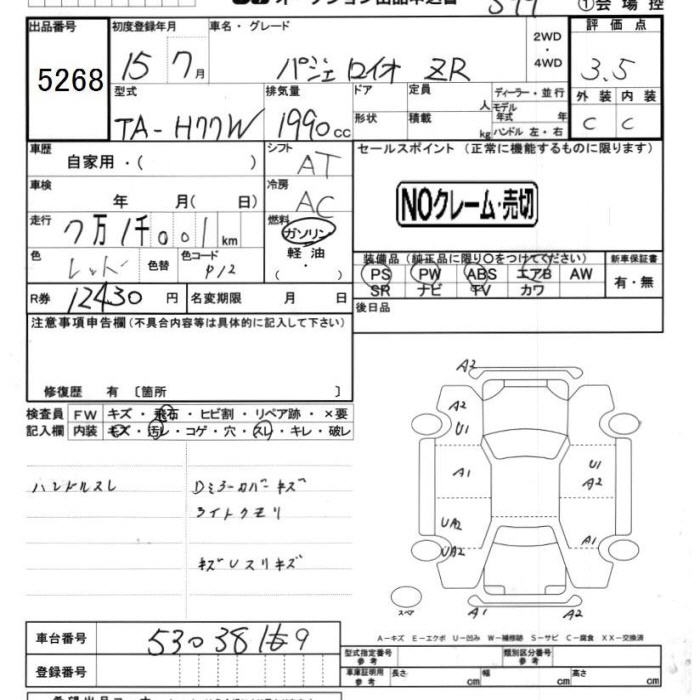 オークション出品申込書
①会場控
出品番号 初度登録年月 車名・グレード 評価点
5268 15 7月 パジェロイオ ZR 2WD・4WD 3.5
型式 排気量 ドア 定員 人 ディーラー・並行
モデル年式 年 外装 内装
TA-H77W 1990cc 形状 積載 kg ハンドル 左・右 C C
車歴 シフト セールスポイント (正常に機能するものに限ります)
自家用・( ) AT
車検 冷房
年 月( 日) AC
NOクレーム・売切
走行 燃料
7万1千001km ガソリン
軽油・( )
色 色替 色コード
レッド P12
装備品(純正品に限り○をつけてください) 新車保証書
PS PW ABS エアB AW 有・無
SR ナビ TV カワ
R券 12430円 名変期限 月 日
後日品
注意事項申告欄(不具合内容等は具体的に記入して下さい)
修復歴 有 〔箇所 〕
検査員 FW キズ・飛石・ヒビ割・リペア跡・×要
記入欄 内装 キズ・汚レ・コゲ・穴・スレ・キレ・破レ
ハンドルスレ Dミラーカバーキズ
ライトクモリ
キズUスリキズ
A2
A2
U1
A1 U1
A2
UA2 A1
UA2
スペア A1 A2
A-キズ E-エクボ U-凹み W-補修跡 S-サビ C-腐食 XX-交換済
車台番号
登録番号
型式指定番号 参考 類別区分番号 参考
車庫証明用 参考 長さ 幅 高さ cm cm cm